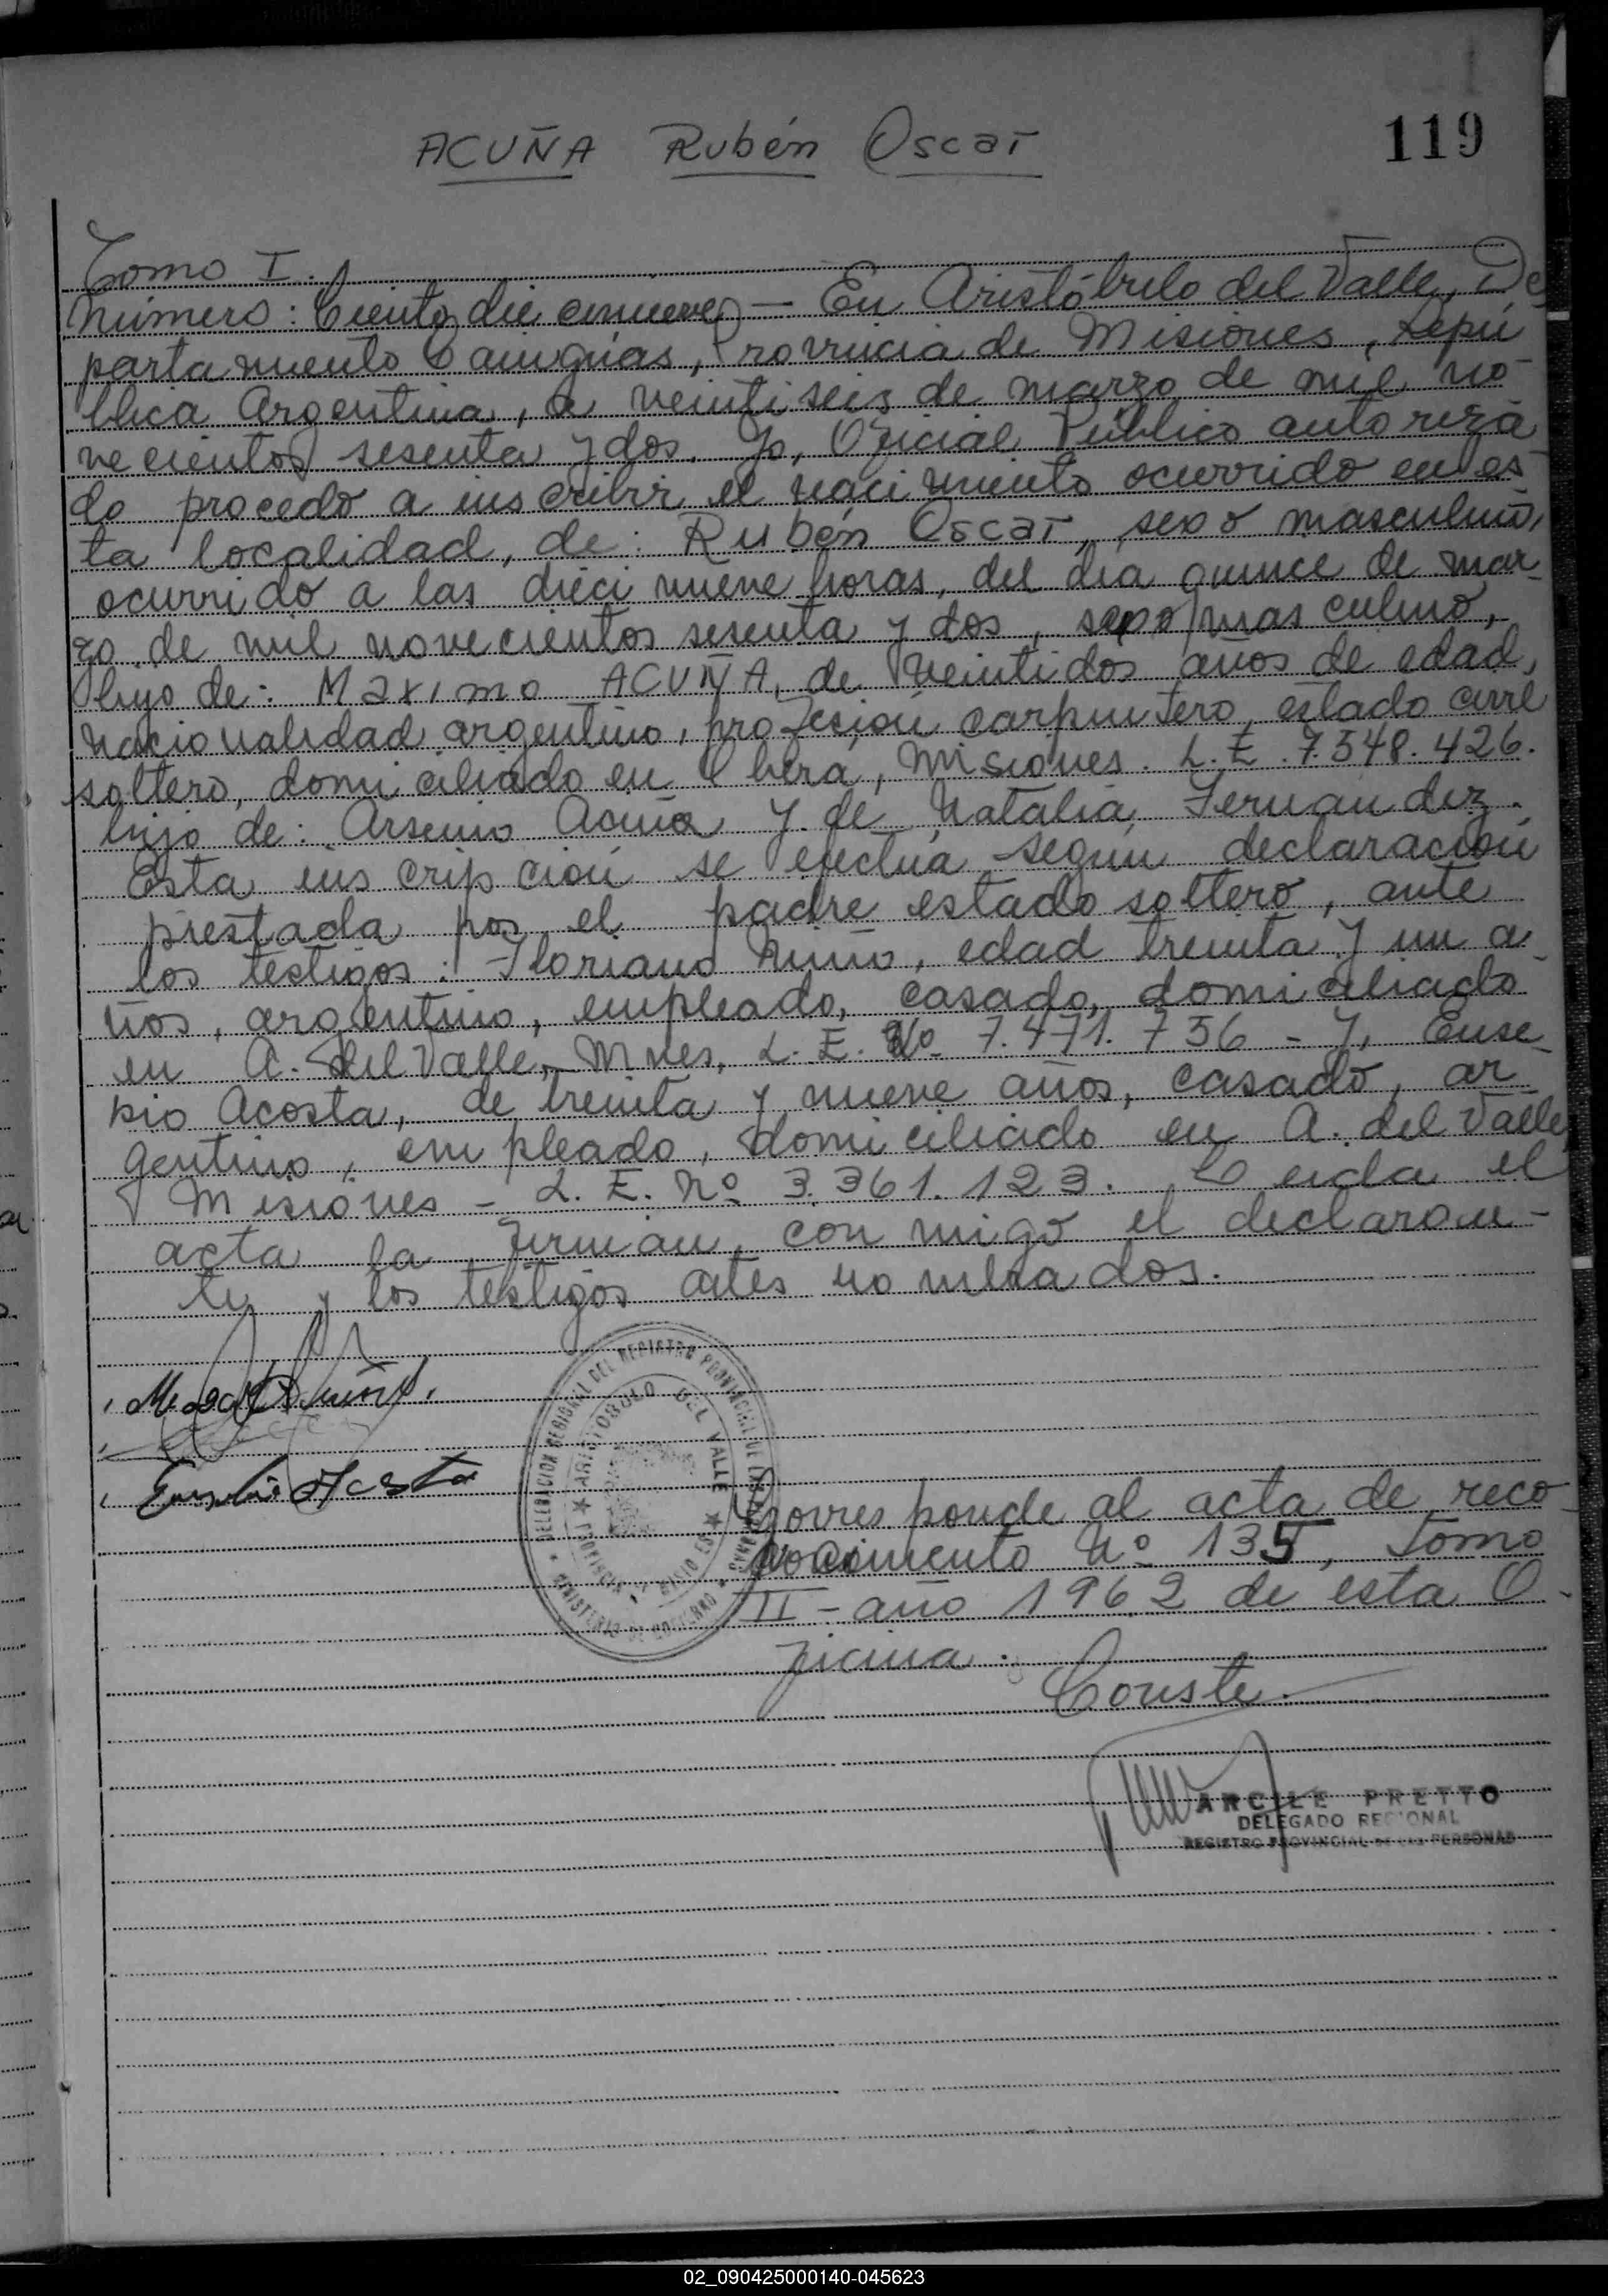 ACUÑA Rubén Oscar
119
Tomo I.
Número: Ciento diecinueve — En Aristóbulo del Valle, De
partamento Cainguás, Provincia de Misiones, Repú
blica Argentina, a veintiseis de marzo de mil no-
vecientos sesenta y dos. Yo, Oficial Público autoriza
do procedo a inscribir el nacimiento ocurrido en es-
ta localidad, de: Rubén Oscar, sexo masculino,
ocurrido a las dieci nueve horas, del día quince de mar-
zo de mil novecientos sesenta y dos, sexo masculino,
hijo de: Maximo ACUÑA, de veintidos años de edad,
nacionalidad argentino, profesión carpintero, estado civil
soltero, domiciliado en Oberá, Misiones. L.E. 7.548.426.
hijo de: Arsenio Acuña y de Natalia Fernandez.
Esta inscripción se efectúa según declaración
prestada por el padre estado soltero, ante
los testigos: Floriano Niño, edad treinta y un a-
ños, argentino, empleado, casado, domiciliado
en A. del Valle, Mnes, L.E. Nº 7.471.756 - y, Euse-
bio Acosta, de treinta y nueve años, casado, ar-
gentino, empleado, domiciliado en A. del Valle,
Misiones - L.E. Nº 3.361.123. Leida el
acta la firman, con migo el declaran-
te y los testigos ates nombrados.
Eusebio Acosta
DELEGACION REGIONAL DEL REGISTRO PROVINCIAL DE LAS PERSONAS
MINISTERIO DE GOBIERNO
ARISTOBULO DEL VALLE
Corresponde al acta de reco-
nocimiento Nº 135, Tomo
II - año 1962 de esta O-
ficina.
Conste.
ARCILE PRETTO
DELEGADO REGIONAL
REGISTRO PROVINCIAL DE LAS PERSONAS
02_090425000140-045623